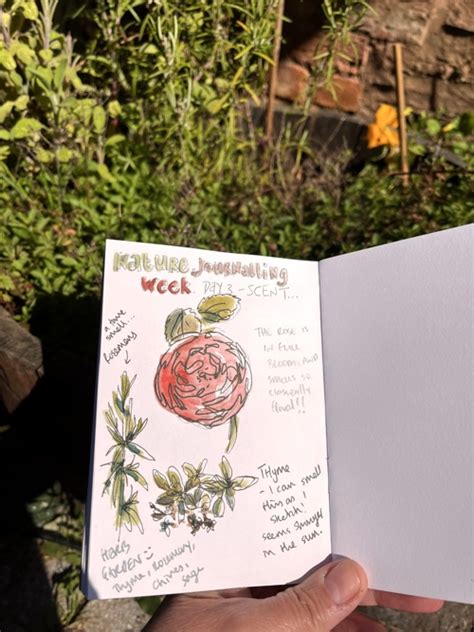 Nature Journalling
Week DAY 3 - SCENT...
smell...
Rosemary
THE ROSE IS
IN FULL
BLOOM AND
SMELLS SO
CLASSICALLY
floral!!
Thyme
- I can smell
this as I
sketch!
seems stronger
in the sun.
HERB
GARDEN
Thyme, Rosemary,
Chives,
sage